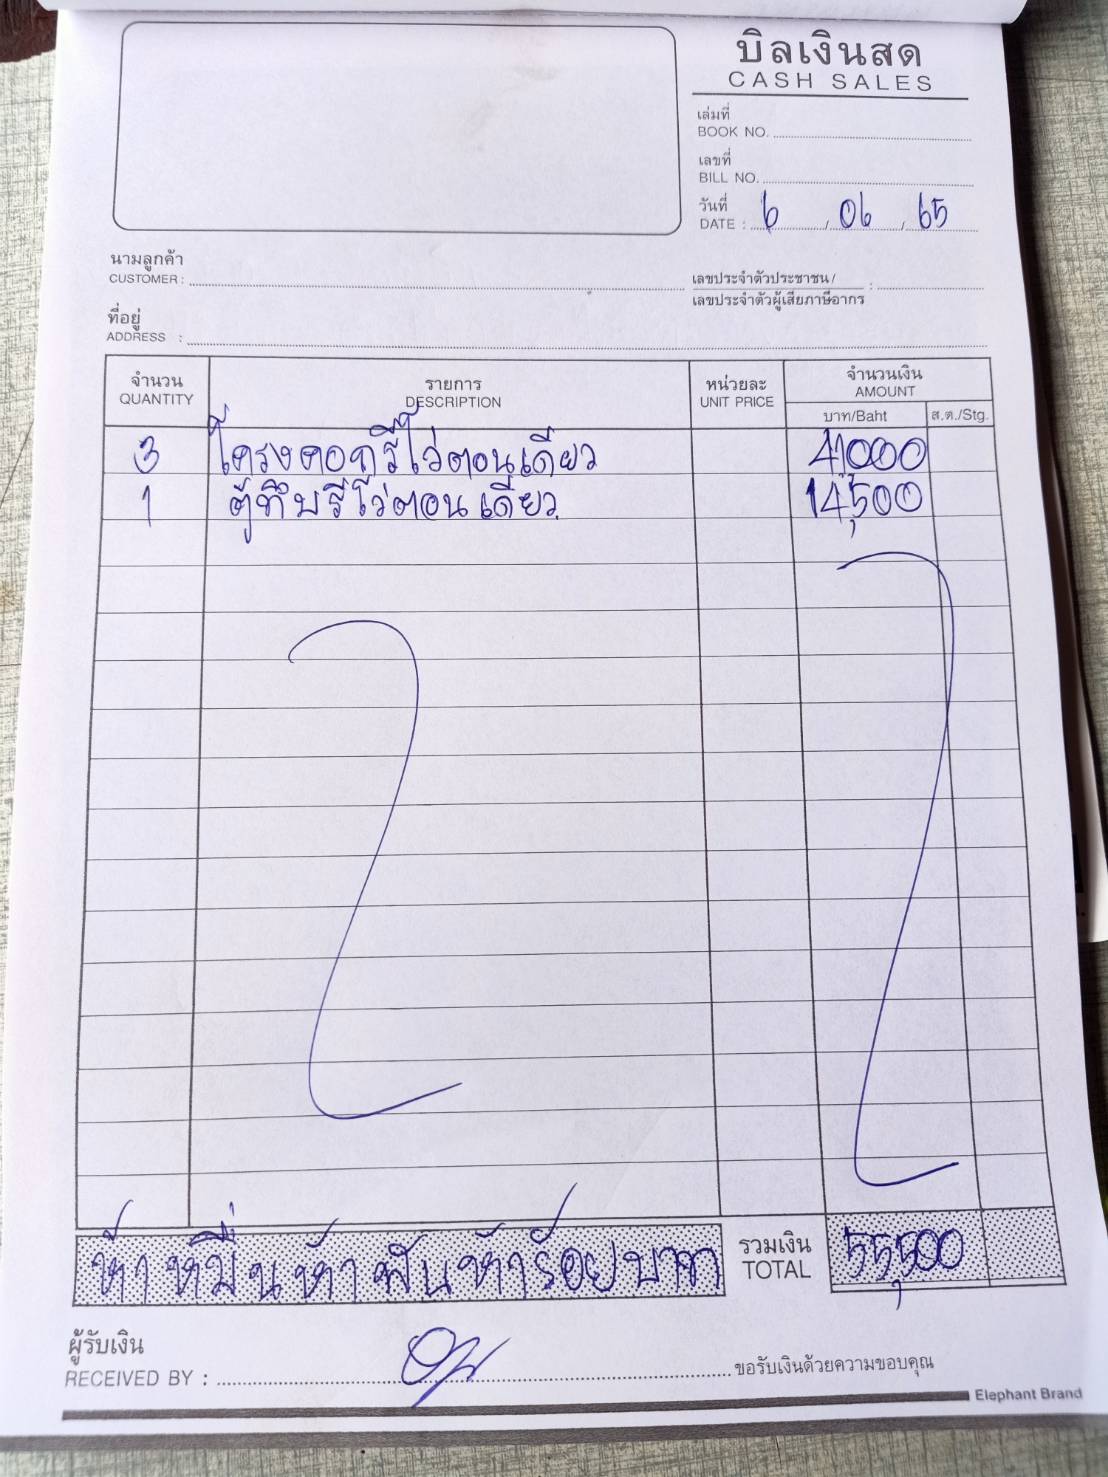 บิลเงินสด
CASH SALES
เล่มที่
BOOK NO.
เลขที่
BILL NO.
วันที่
DATE : 6 / 06 / 65
นามลูกค้า
CUSTOMER :
เลขประจำตัวประชาชน / :
เลขประจำตัวผู้เสียภาษีอากร
ที่อยู่
ADDRESS :
จำนวน รายการ หน่วยละ จำนวนเงิน
QUANTITY DESCRIPTION UNIT PRICE AMOUNT
บาท/Baht ส.ต./Stg.
3 โครงคอกรีโว่ตอนเดียว 41,000
1 ตู้ทึบรีโว่ตอนเดียว 14,500
ห้าหมื่นห้าพันห้าร้อยบาท รวมเงิน 55,500
TOTAL
ผู้รับเงิน
RECEIVED BY : ขอรับเงินด้วยความขอบคุณ
Elephant Brand